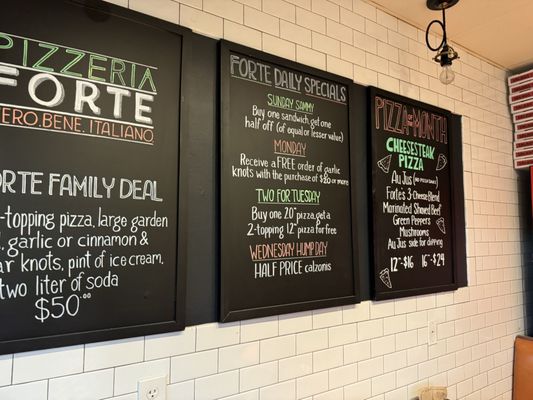 PIZZERIA
FORTE
VERO. BENE. ITALIANO
FORTE FAMILY DEAL
2-topping pizza, large garden
garlic or cinnamon &
sugar knots, pint of ice cream,
two liter of soda
$50.00
FORTE DAILY SPECIALS
SUNDAY SAMMY
Buy one sandwich, get one
half off (of equal or lesser value)
MONDAY
Receive a FREE order of garlic
knots with the purchase of $20 or more
TWO FOR TUESDAY
Buy one 20" pizza, get a
2-topping 12" pizza for free
WEDNESDAY HUMP DAY
HALF PRICE calzonis
PIZZA of the MONTH
CHEESESTEAK
PIZZA
Au Jus (no pizza sauce)
Forte's 3-Cheese Blend
Marinated Shaved Beef
Green Peppers
Mushrooms
Au Jus side for dipping
12" $16 16" $24